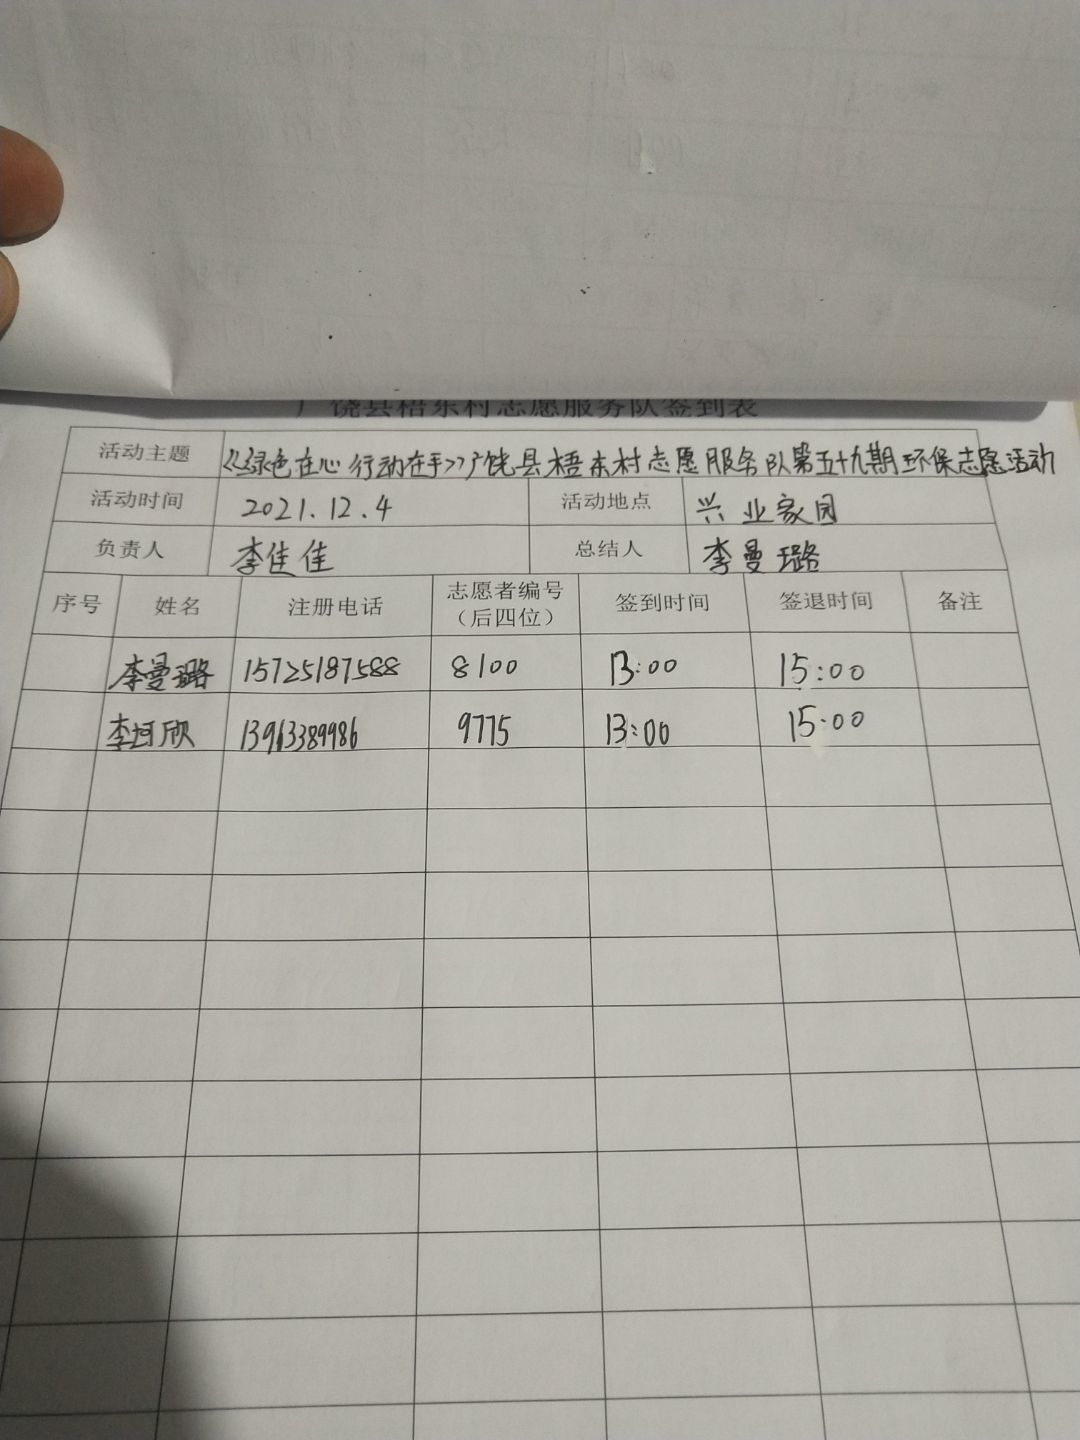 广饶县梧东村志愿服务队签到表
活动主题 《绿色在心 行动在手》广饶县梧东村志愿服务队第五十九期环保志愿活动
活动时间 2021.12.4 活动地点 兴业家园
负责人 李佳佳 总结人 李曼璐
序号 姓名 注册电话 志愿者编号（后四位） 签到时间 签退时间 备注
李曼璐 15725187588 8100 13:00 15:00
李坷欣 13963389986 9775 13:00 15:00